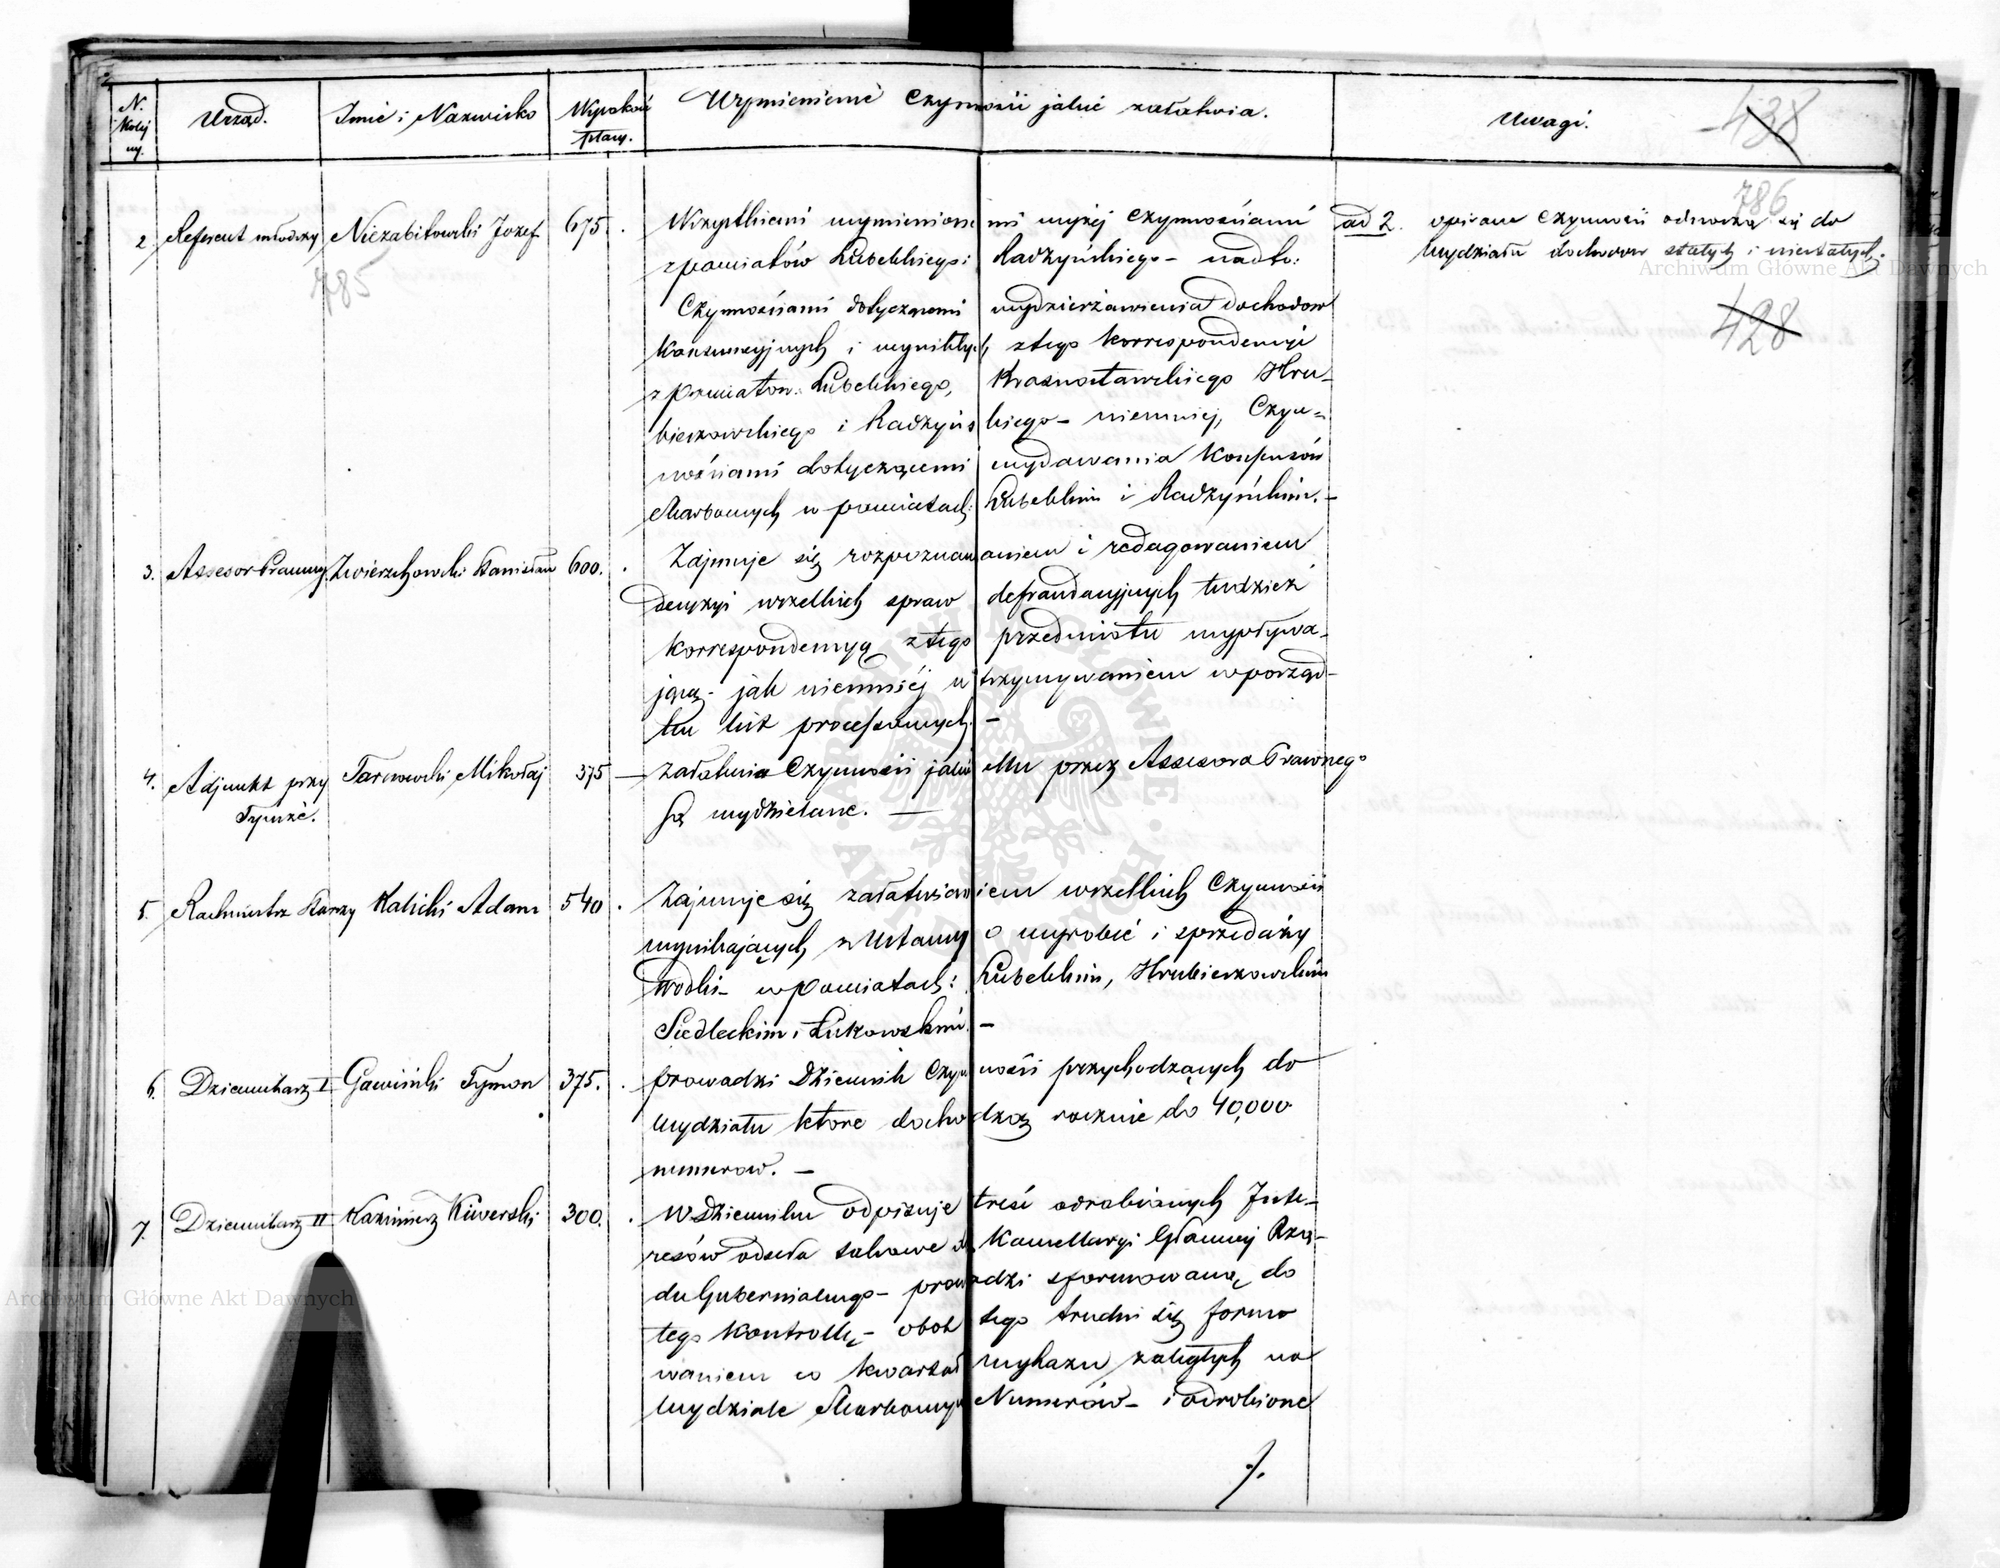 N. Kolej ny.
Urząd.
Imie i Nazwisko
Wysokość płacy.
Wymienienie Czynności jakie załatwia.
Uwagi.
438
786
2 Referent młodszy Niezabitowski Jozef 675.
785
Wszystkiemi wymienione mi wyżej Czynnościami
z powiatów Lubelskiego i Radzyńskiego – nadto:
Czynnościami dotyczącemi wydzierżawienia dochodow
Konsumcyjnych i wynikłych z tego korrespondencyi
z powiatow: Lubelskiego, Krasnostawskiego Hru-
bieszowskiego i Radzyńs kiego – niemniej, Czyn=
nościami dotyczącemi wydawania Konsensów
Skarbowych w powiatach: Lubelskim i Radzyńskim. –
ad 2. opisane Czynności odnoszą się do
Wydziału dochodow stałych i niestałych.
428
3. Assesor Prawny Zwierzchowski Stanisław 600.
Zajmuje się rozpoznaw aniem i redagowaniem
decyzyi wszelkich spraw defraudacyjnych tudzież
korrespondencyą z tego przedmiotu wypływa-
jącą – jak niemniéj u trzymywaniem w porząd-
ku list processowych. –
4. Adjunkt przy Tymże. Tarnowski Mikołaj 375 –
Załatwia Czynności jakie Mu przez Assesora Prawnego
są wydzielane. –
5. Rachmistrz Starszy Kalicki Adam 540.
Zajmuje się załatwian iem wszelkich Czynności
wynikających z Ustawy o wyrobie i sprzedaży
Wódki – w powiatach: Lubelskim, Hrubieszowskim
Siedleckim i Łukowskim. –
6. Dziennikarz I Gawiński Tymon 375.
prowadzi Dziennik Czyn ności przychodzących do
Wydziału które docho dzą rocznie do 40,000
numerow. –
7. Dziennikarz II Kazimierz Kiwerski 300.
W Dzienniku odpisuje treść odrobionych Inte-
resów odseła takowe do Kancellaryi Głównej Rzą-
du Gubernialnego – prow adzi sformowaną do
tego Kontrollę – obok tego trudni się formo
waniem co kwartał wykazu zaległych na
Wydziale Skarbowym Numerów – i odrobione
./.
Archiwum Główne Akt Dawnych
Archiwum Główne Akt Dawnych